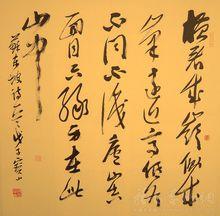 横看成嶺側成
峯遠近高低各
不同不識廬山真
面目只緣身在此
山中
蘇東坡詩